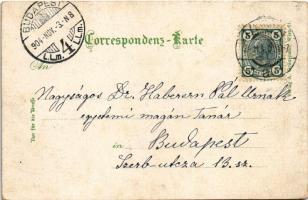 BUDAPEST
904 NOV. 3. N 8
4
Correspondenz-Karte
An
5 5
5 5
Nagyságos Dr. Haberern Pál Urnak
egyetemi magán tanár
in Budapest
Szerb-utcza 13. sz.